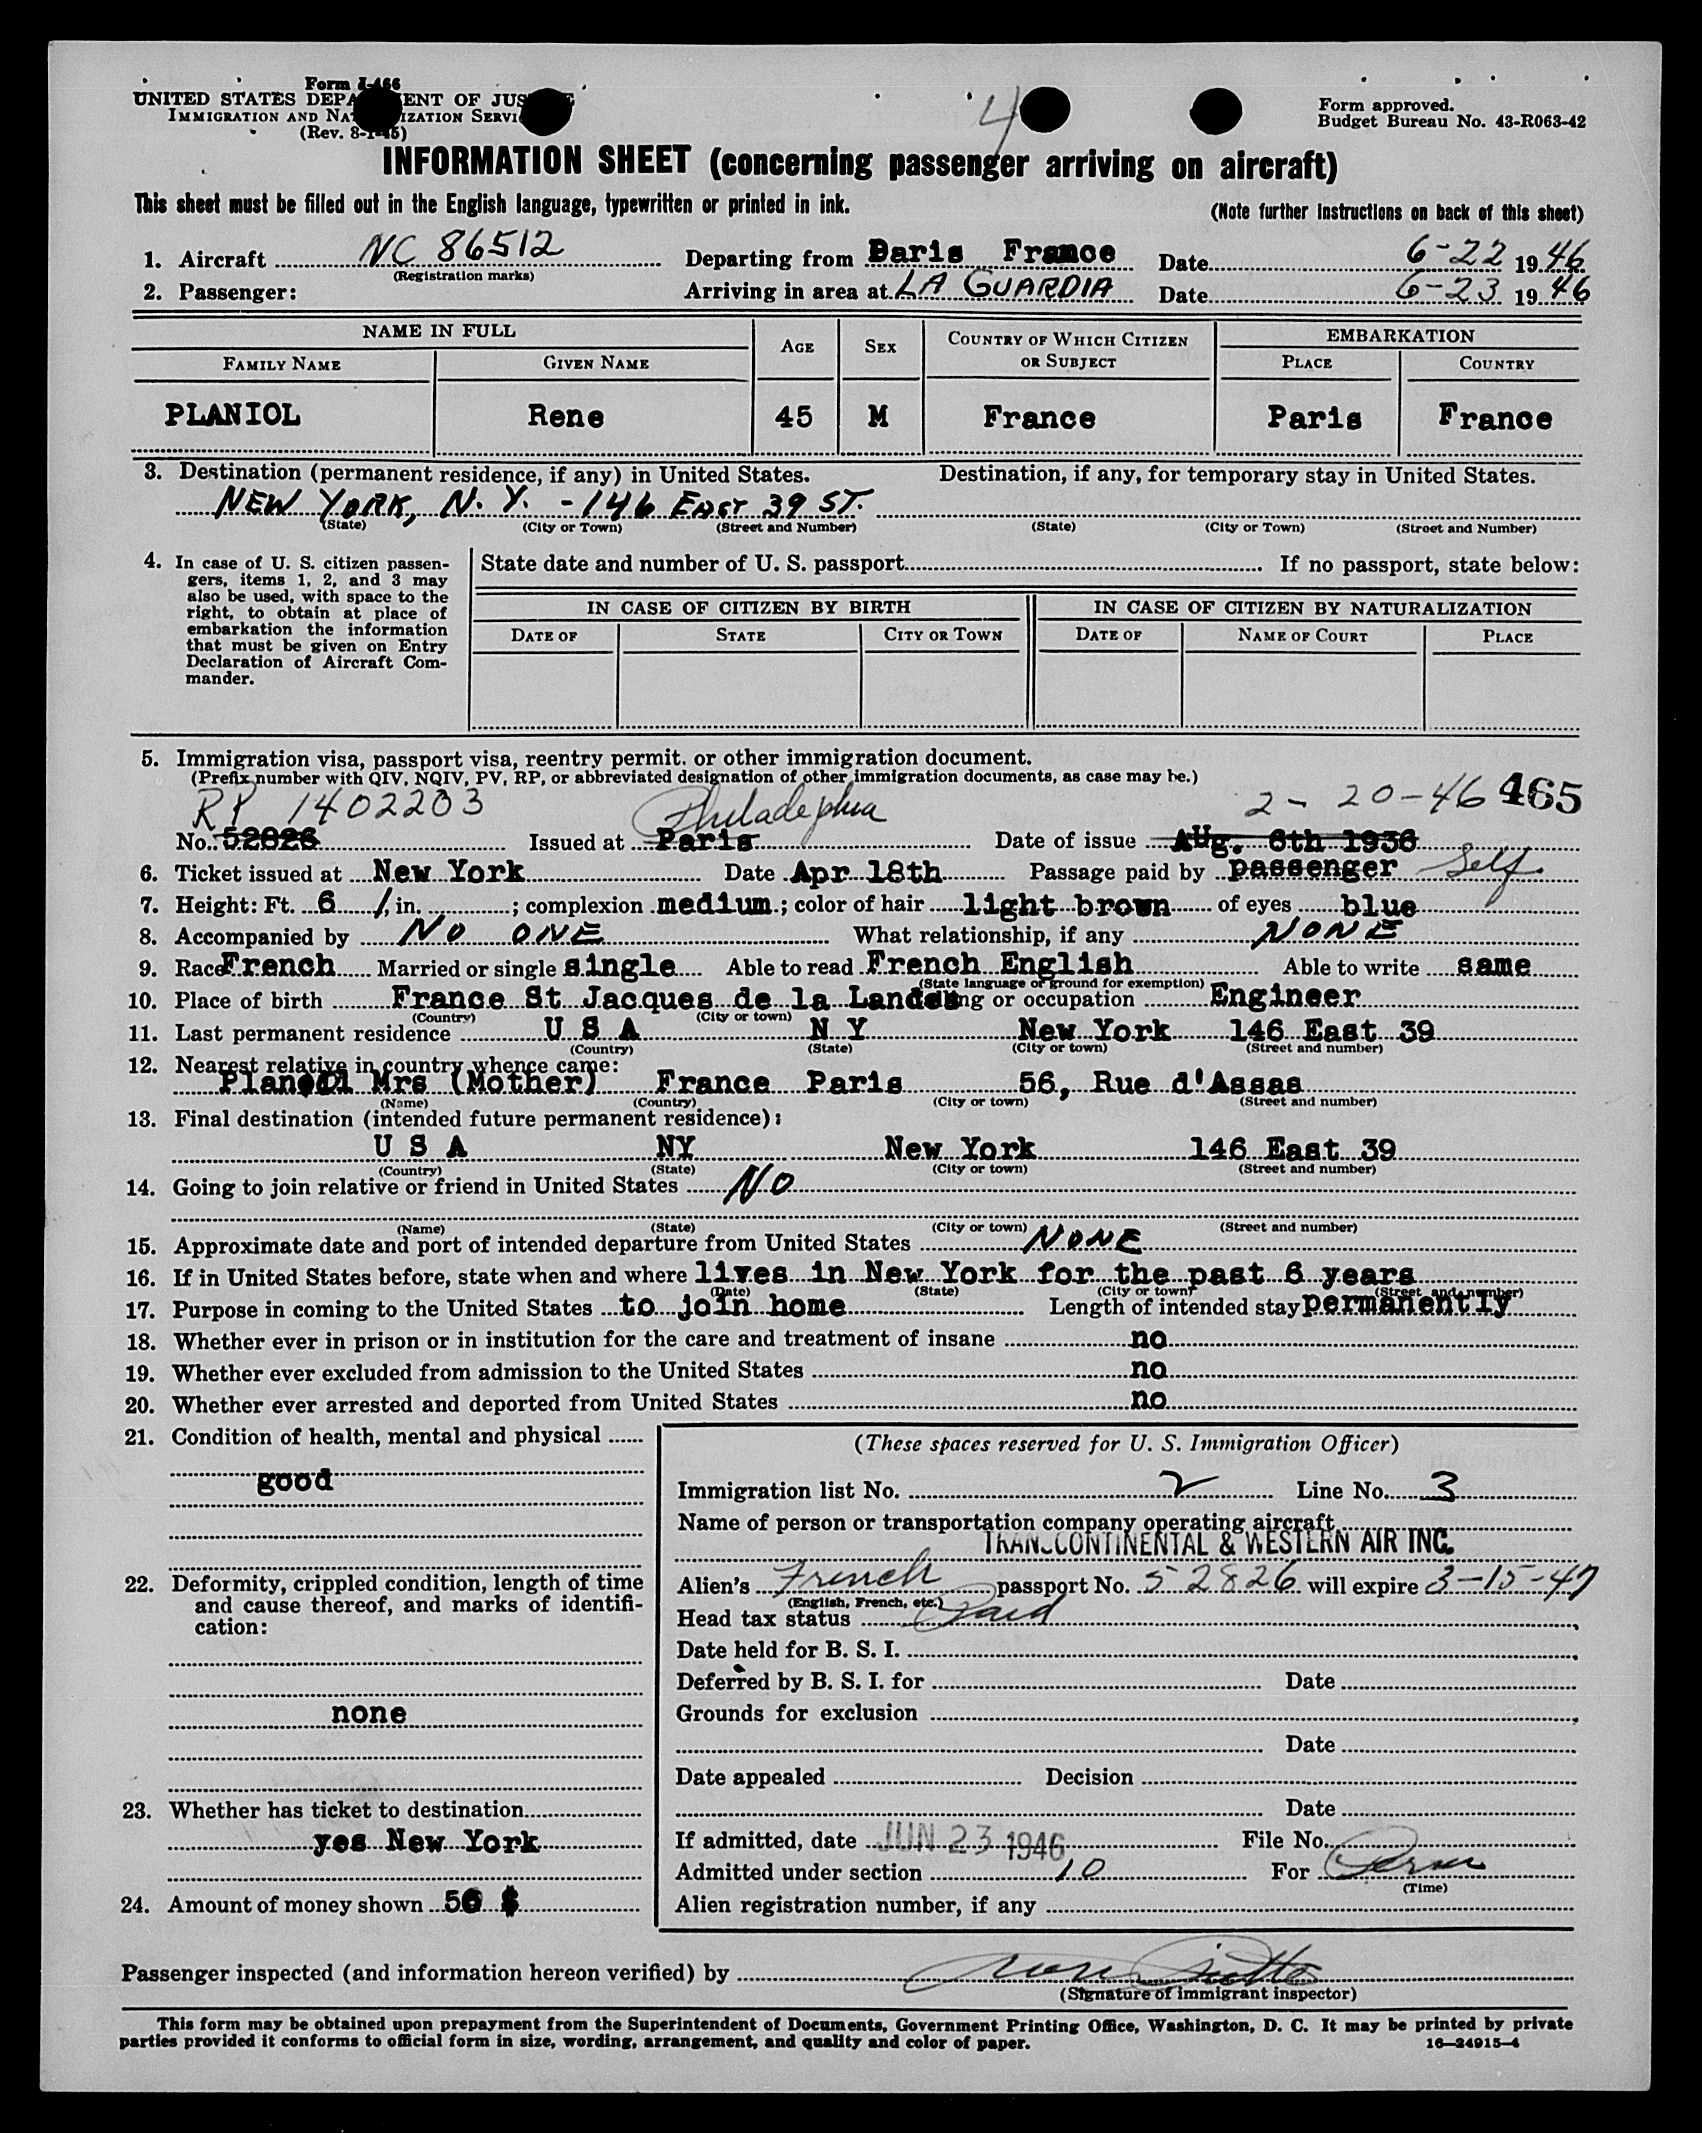 Form I-466
UNITED STATES DEPARTMENT OF JUSTICE
IMMIGRATION AND NATURALIZATION SERVICE
(Rev. 8-1-45)
4
Form approved.
Budget Bureau No. 43-R063-42
INFORMATION SHEET (concerning passenger arriving on aircraft)
This sheet must be filled out in the English language, typewritten or printed in ink.
(Note further instructions on back of this sheet)
1. Aircraft NC 86512 Departing from Paris France Date 6-22 1946
(Registration marks)
2. Passenger: Arriving in area at LA GUARDIA Date 6-23 1946
NAME IN FULL AGE SEX COUNTRY OF WHICH CITIZEN OR SUBJECT EMBARKATION
FAMILY NAME GIVEN NAME PLACE COUNTRY
PLANIOL Rene 45 M France Paris France
3. Destination (permanent residence, if any) in United States. Destination, if any, for temporary stay in United States.
NEW YORK, N. Y. - 146 EAST 39 ST.
(State) (City or Town) (Street and Number) (State) (City or Town) (Street and Number)
4. In case of U. S. citizen passen-
gers, items 1, 2, and 3 may
also be used, with space to the
right, to obtain at place of
embarkation the information
that must be given on Entry
Declaration of Aircraft Com-
mander.
State date and number of U. S. passport If no passport, state below:
IN CASE OF CITIZEN BY BIRTH IN CASE OF CITIZEN BY NATURALIZATION
DATE OF STATE CITY OR TOWN DATE OF NAME OF COURT PLACE
5. Immigration visa, passport visa, reentry permit, or other immigration document.
(Prefix number with QIV, NQIV, PV, RP, or abbreviated designation of other immigration documents, as case may be.)
RP 1402203 Philadephia 2-20-46 465
No. 52826 Issued at Paris Date of issue Aug. 6th 1936
6. Ticket issued at New York Date Apr 18th Passage paid by passenger Self
7. Height: Ft. 6 1, in. ; complexion medium ; color of hair light brown of eyes blue
8. Accompanied by NO ONE What relationship, if any NONE
9. Race French Married or single single Able to read French English Able to write same
(State language or ground for exemption)
10. Place of birth France St Jacques de la Landeing or occupation Engineer
(Country) (City or town)
11. Last permanent residence U S A N Y New York 146 East 39
(Country) (State) (City or town) (Street and number)
12. Nearest relative in country whence came:
Planiol Mrs (Mother) France Paris 56, Rue d'Assas
(Name) (Country) (City or town) (Street and number)
13. Final destination (intended future permanent residence):
U S A NY New York 146 East 39
(Country) (State) (City or town) (Street and number)
14. Going to join relative or friend in United States NO
(Name) (State) (City or town) (Street and number)
15. Approximate date and port of intended departure from United States NONE
16. If in United States before, state when and where lives in New York for the past 6 years
(Date) (State) (City or town) (Street and number)
17. Purpose in coming to the United States to join home Length of intended stay permanently
18. Whether ever in prison or in institution for the care and treatment of insane no
19. Whether ever excluded from admission to the United States no
20. Whether ever arrested and deported from United States no
21. Condition of health, mental and physical
good
22. Deformity, crippled condition, length of time
and cause thereof, and marks of identifi-
cation:
none
23. Whether has ticket to destination
yes New York
24. Amount of money shown 50 $
(These spaces reserved for U. S. Immigration Officer)
Immigration list No. 2 Line No. 3
Name of person or transportation company operating aircraft
TRANSCONTINENTAL & WESTERN AIR INC.
Alien's French passport No. 52826 will expire 3-15-47
(English, French, etc.)
Head tax status Paid
Date held for B. S. I.
Deferred by B. S. I. for Date
Grounds for exclusion
Date
Date appealed Decision
Date
If admitted, date JUN 23 1946 File No.
Admitted under section 10 For Perm
(Time)
Alien registration number, if any
Passenger inspected (and information hereon verified) by
(Signature of immigrant inspector)
This form may be obtained upon prepayment from the Superintendent of Documents, Government Printing Office, Washington, D. C. It may be printed by private
parties provided it conforms to official form in size, wording, arrangement, and quality and color of paper. 16—24915-4